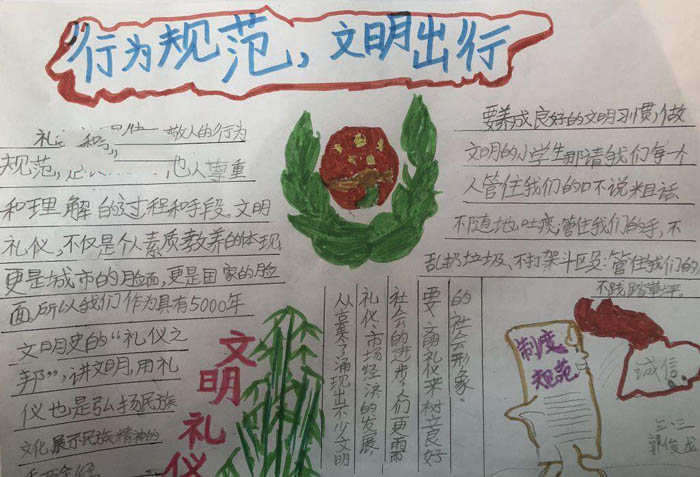 行为规范，文明出行
礼 和 敬人的行为
规范， 他人尊重
和理解的过程和手段。文明
礼仪，不仅是个人素质教养的体现，
更是城市的脸面，更是国家的脸
面，所以我们作为具有5000年
文明史的“礼仪之
邦”，讲文明，用礼
仪也是弘扬民族
文化，展示民族精神的
要养成良好的文明习惯，做
文明的小学生那请我们每个
人管住我们的口不说粗话
不随地吐痰；管住我们的手，不
乱扔垃圾、不打架斗殴；管住我们的
不践踏草坪。
文明礼仪
的社会形象”
要文明礼仪来树立良好
社会的进步，人们更需
礼仪、市场经济的发展、
从古至今涌现出不少文明
制度
规范
诚信
三·二
郭俊